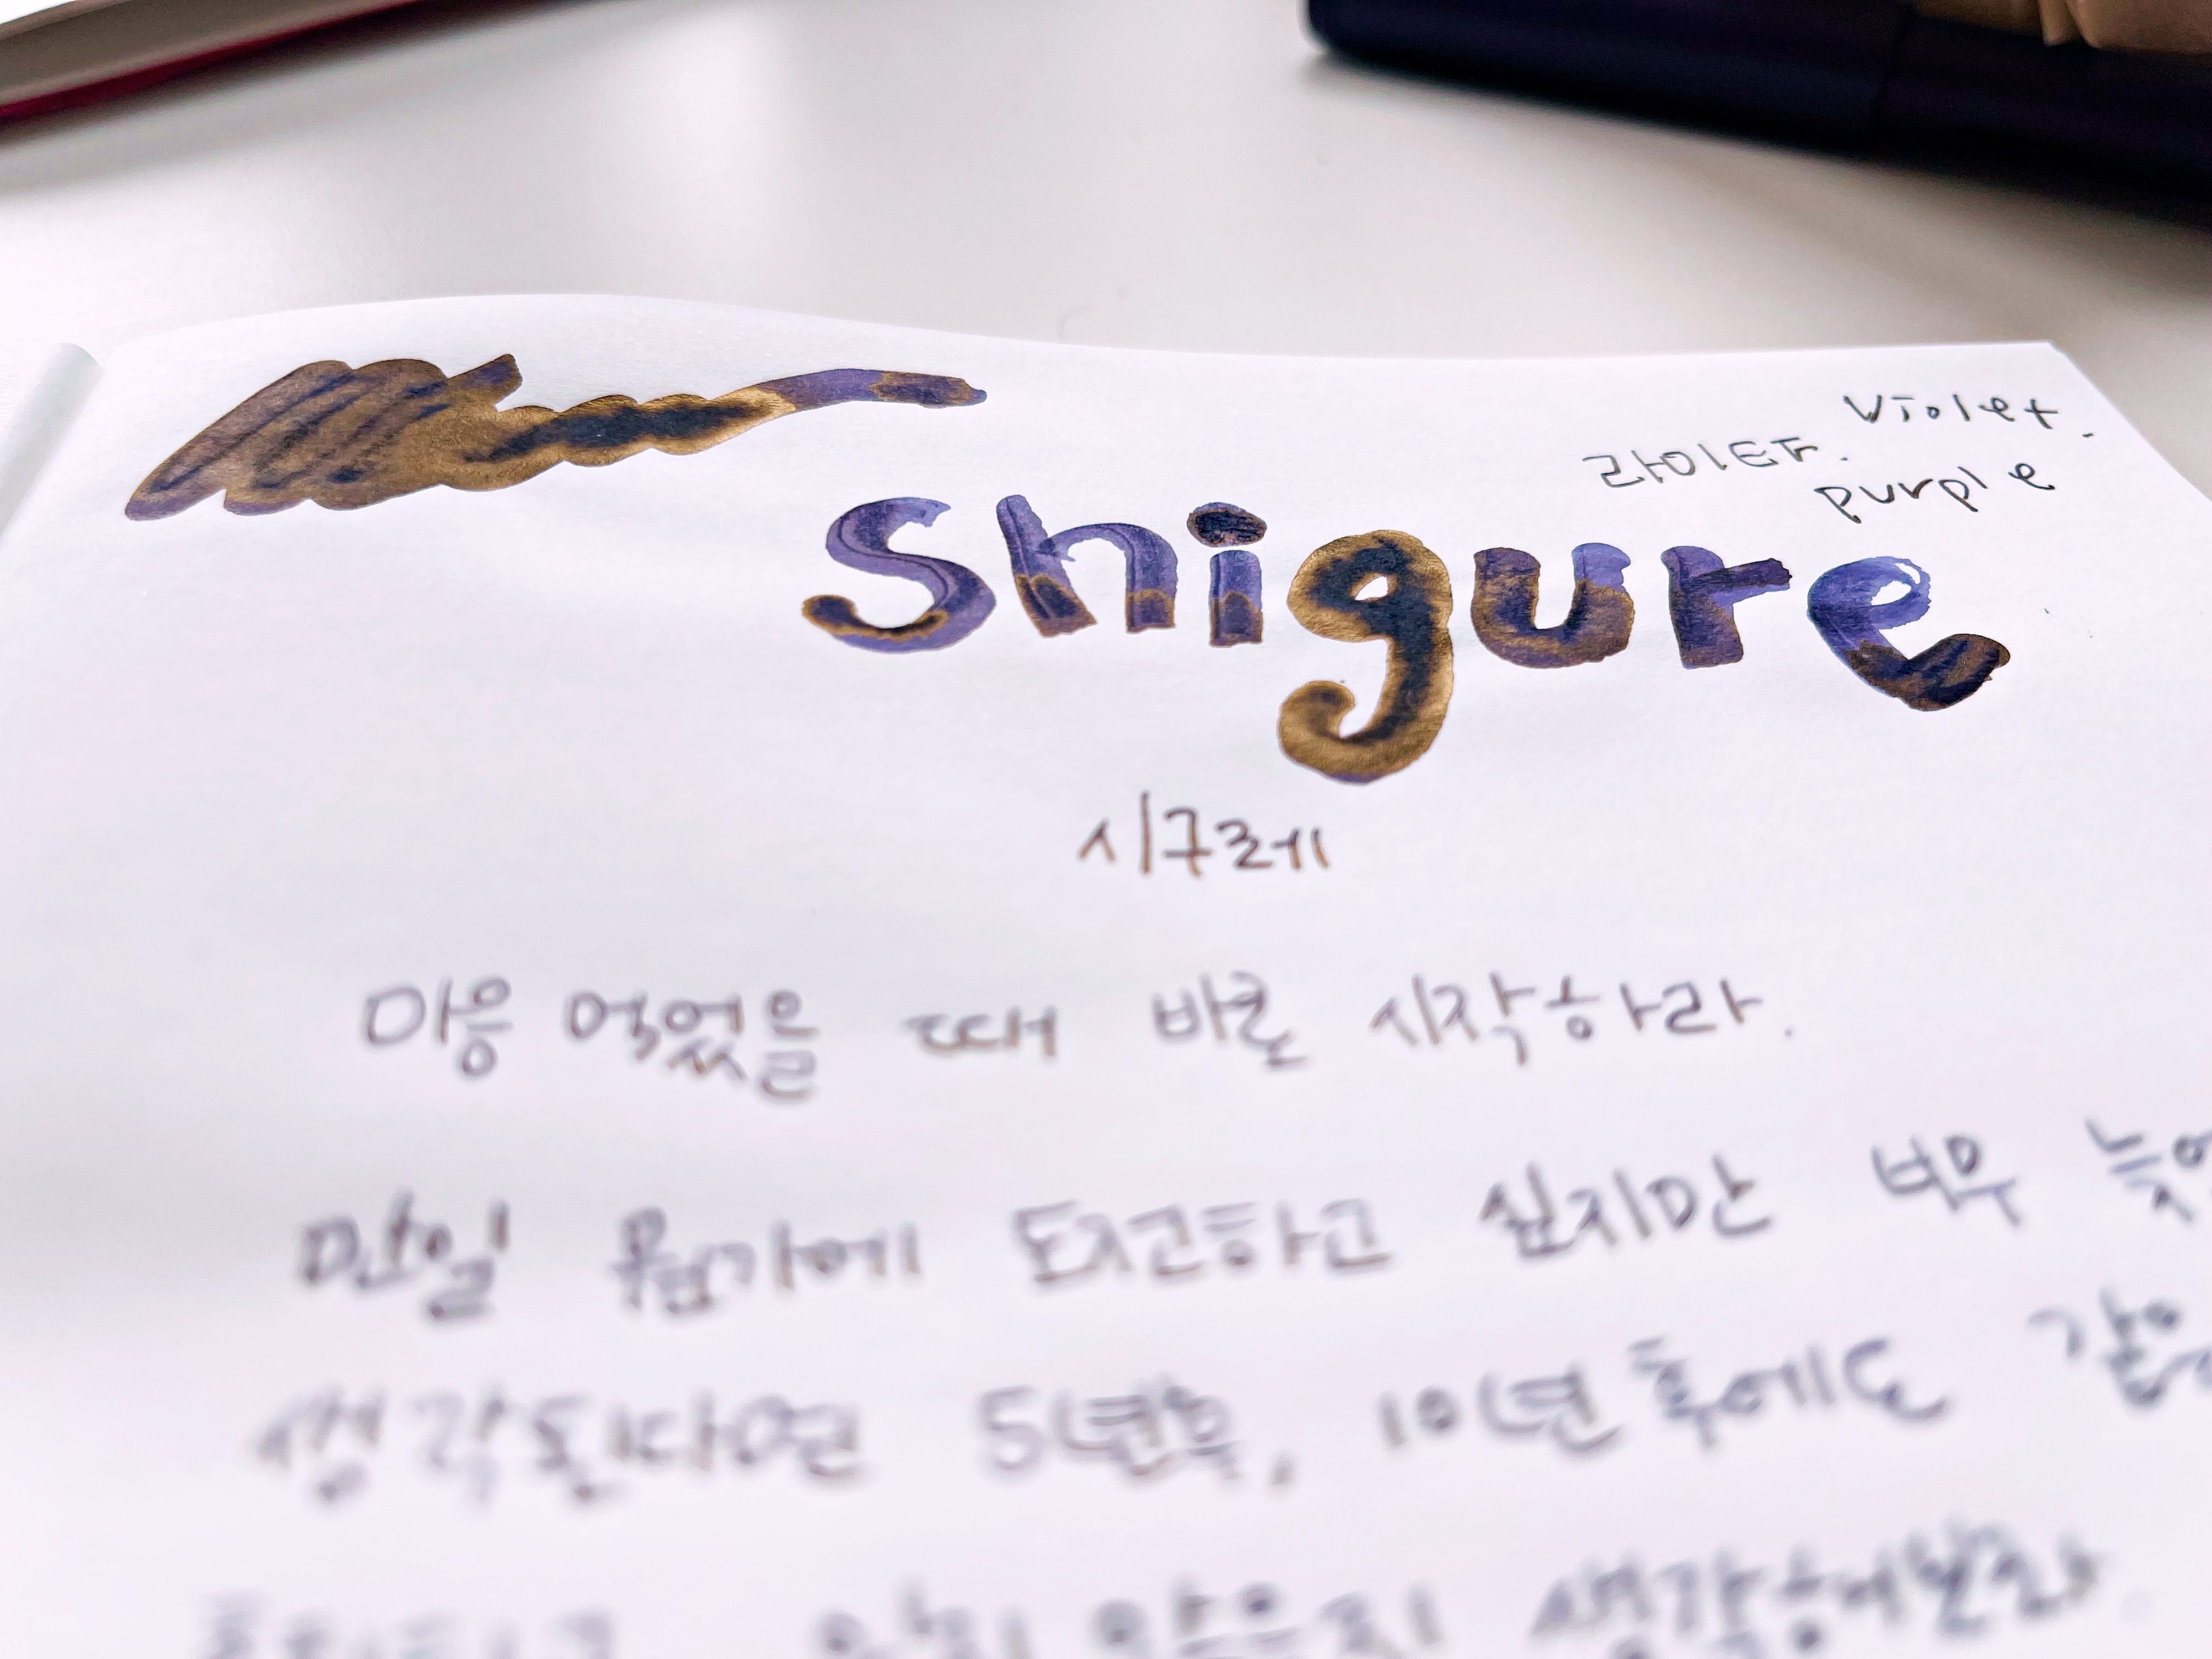 violet.
라이트.
purple
Shigure
시구레
마음 먹었을 때 바로 시작하라.
만일 뭔가에 도전하고 싶지만 너무
생각된다면 5년후, 10년후에도
생각해보라